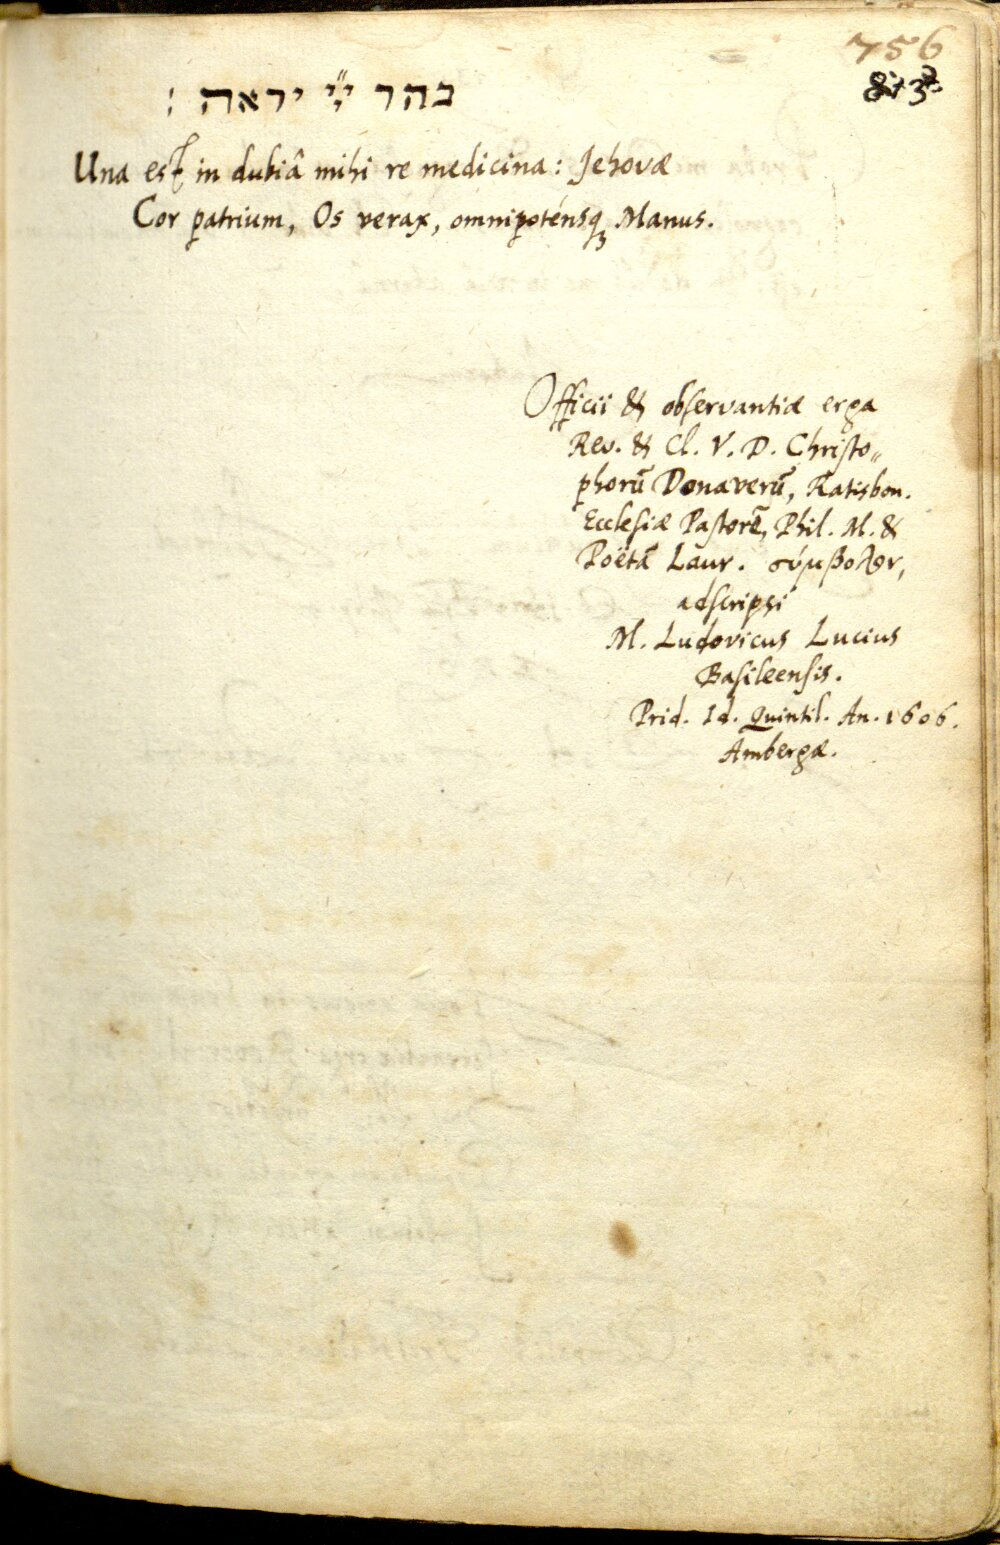 756
בהר יי יראה :
Una est in dubiâ mihi re medicina: Jehovæ
Cor patrium, Os verax, omnipoténsq; Manus.
Officii & observantiæ erga
Rev. & Cl. V. D. Christo„
phorū Donaverū, Ratisbon.
Ecclesiæ Pastorē, Phil. M. &
Poëtā Laur. σύμβολον,
adscripsi
M. Ludovicus Lucius
Basileensis.
Prid. Id. Quintil. An. 1606.
Ambergæ.